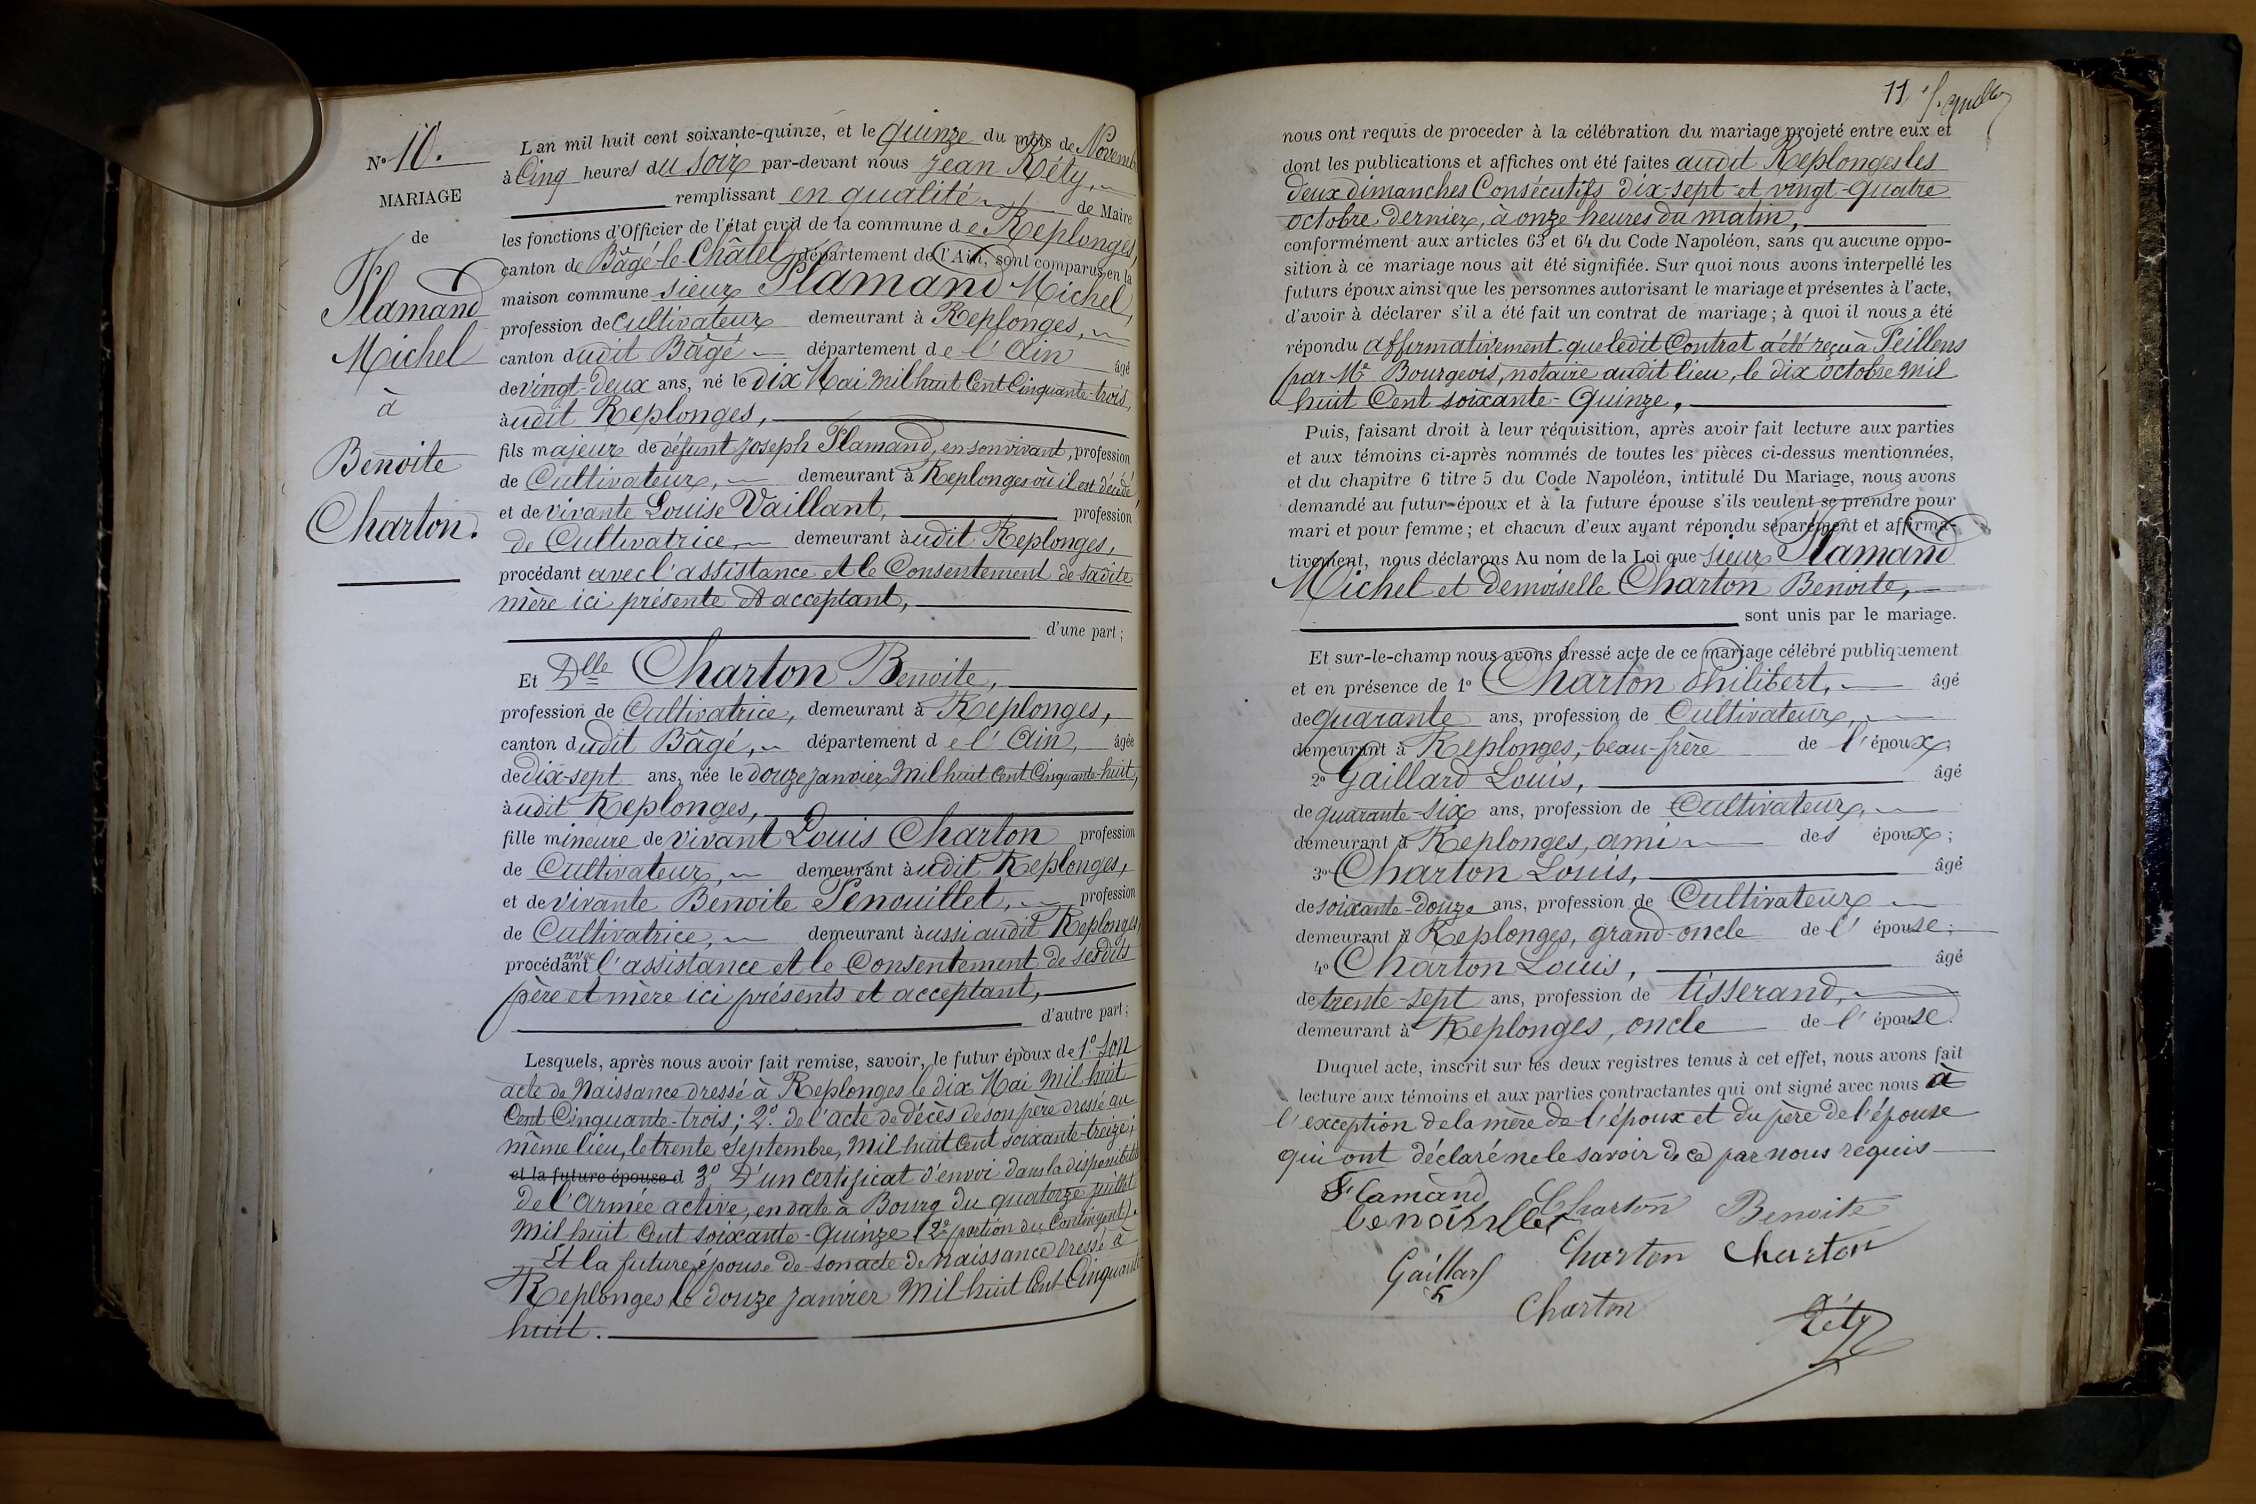 N° 10.
MARIAGE
de
Flamand
Michel
à
Benoite
Charton.
L'an mil huit cent soixante-quinze, et le quinze du mois de Novembre
à Cinq heures du soir par-devant nous Jean Réty,
remplissant en qualité de Maire
les fonctions d'Officier de l'état civil de la commune de Replonges,
canton de Bâgé-le-Châtel, département de l'Ain, sont comparus, en la
maison commune sieur Flamand Michel,
profession de Cultivateur demeurant à Replonges,
canton dudit Bâgé département de l'Ain âgé
de vingt-deux ans, né le dix Mai mil huit Cent Cinquante-trois,
audit Replonges,
fils majeur de défunt Joseph Flamand, en son vivant, profession
de Cultivateur, demeurant à Replonges où il est décédé,
et de vivante Louise Vaillant, profession
de Cultivatrice, demeurant audit Replonges,
procédant avec l'assistance et le Consentement de sadite
mère ici présente et acceptant,
d'une part;
Et Dlle Charton Benoite,
profession de Cultivatrice, demeurant à Replonges,
canton dudit Bâgé, département de l'Ain, âgée
de dix-sept ans, née le douze janvier mil huit Cent Cinquante-huit,
audit Replonges,
fille mineure de vivant Louis Charton profession
de Cultivateur, demeurant audit Replonges,
et de vivante Benoite Penouillet, profession
de Cultivatrice, demeurant aussi audit Replonges,
procédant avec l'assistance et le Consentement de sesdits
père et mère ici présents et acceptant,
d'autre part;
Lesquels, après nous avoir fait remise, savoir, le futur époux de 1° son
acte de Naissance dressé à Replonges le dix Mai mil huit
Cent Cinquante-trois; 2° de l'acte de décès de son père dressé au
même lieu, le trente Septembre, mil huit Cent soixante-treize;
et la future épouse d 3° D'un certificat d'envoi dans la disponibilité
de l'Armée active, en date à Bourg du quatorze juillet
mil huit Cent soixante-Quinze (2e portion du Contingent).
Et la future épouse de son acte de Naissance dressé à
Replonges le douze janvier mil huit Cent Cinquante
huit.
11
nous ont requis de proceder à la célébration du mariage projeté entre eux et
dont les publications et affiches ont été faites audit Replonges les
deux dimanches Consécutifs dix-sept et vingt-quatre
octobre dernier, à onze heures du matin,
conformément aux articles 63 et 64 du Code Napoléon, sans qu'aucune oppo-
sition à ce mariage nous ait été signifiée. Sur quoi nous avons interpellé les
futurs époux ainsi que les personnes autorisant le mariage et présentes à l'acte,
d'avoir à déclarer s'il a été fait un contrat de mariage; à quoi il nous a été
répondu affirmativement que ledit Contrat a été reçu à Feillens
par Me Bourgeois, notaire audit lieu, le dix octobre mil
huit Cent soixante-Quinze,
Puis, faisant droit à leur réquisition, après avoir fait lecture aux parties
et aux témoins ci-après nommés de toutes les pièces ci-dessus mentionnées,
et du chapitre 6 titre 5 du Code Napoléon, intitulé Du Mariage, nous avons
demandé au futur époux et à la future épouse s'ils veulent se prendre pour
mari et pour femme; et chacun d'eux ayant répondu séparément et affirma-
tivement, nous déclarons Au nom de la Loi que sieur Flamand
Michel et Demoiselle Charton Benoite,
sont unis par le mariage.
Et sur-le-champ nous avons dressé acte de ce mariage célébré publiquement
et en présence de 1° Charton Philibert, âgé
de quarante ans, profession de Cultivateur,
demeurant à Replonges, beau-frère de l'époux;
2° Gaillard Louis, âgé
de quarante-six ans, profession de Cultivateur,
demeurant à Replonges, ami des époux;
3° Charton Louis, âgé
de soixante-douze ans, profession de Cultivateur
demeurant à Replonges, grand-oncle de l'épouse;
4° Charton Louis, âgé
de trente-sept ans, profession de tisserand,
demeurant à Replonges, oncle de l'épouse.
Duquel acte, inscrit sur les deux registres tenus à cet effet, nous avons fait
lecture aux témoins et aux parties contractantes qui ont signé avec nous à
l'exception de la mère de l'époux et du père de l'épouse
qui ont déclaré ne le savoir de ce par nous requis
Flamand Charton Benoite
Gaillard Charton Charton
Charton Réty